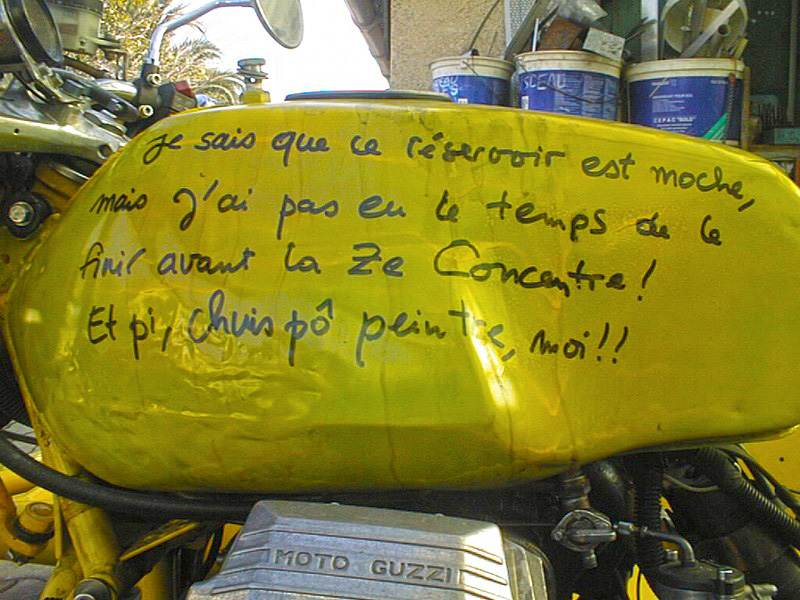 SCEAU
CEPAC "SOLS"
Je sais que ce réservoir est moche,
mais j'ai pas eu le temps de le
finir avant la Ze Concentre!
Et pi, chuis pô peintre, moi!!
MOTO GUZZI